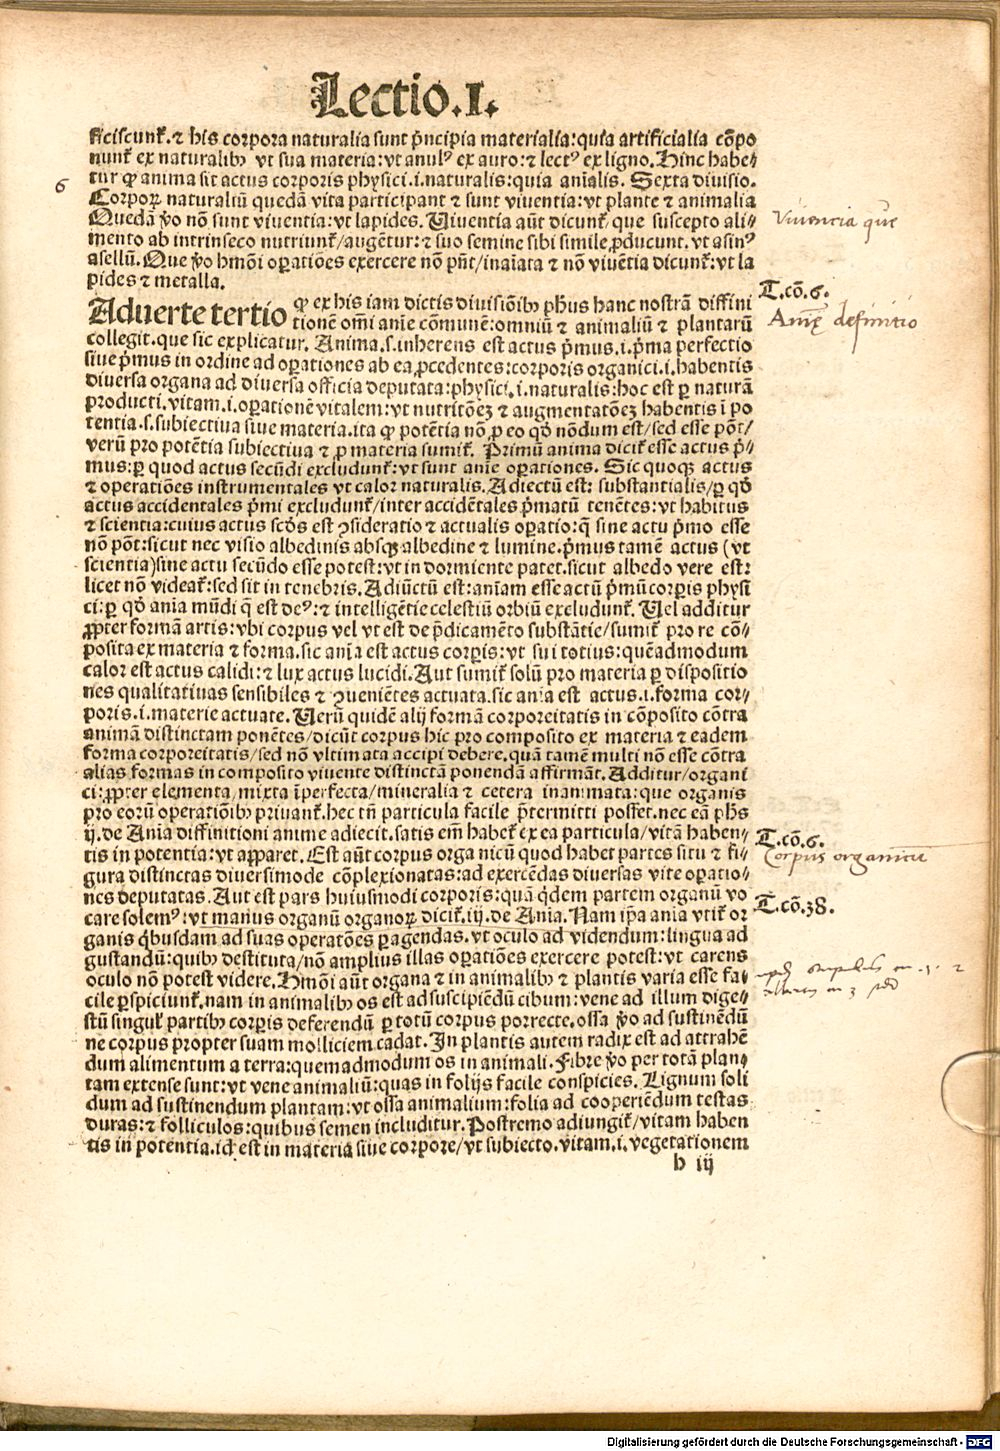 Lectio.I.
ficiscunt̃. ⁊ his corpora naturalia sunt p̃ncipia materialia: quia artificialia cõpo
nunt̃ ex naturalibꝫ vt sua materia: vt anulꝰ ex auro: ⁊ lectꝰ ex ligno. Hinc habe⸗
tur ꝙ anima sit actus corporis physici. i. naturalis: quia aĩalis. Sexta diuisio.
6
Corpoꝝ naturaliũ quedã vita participant ⁊ sunt viuentia: vt plante ⁊ animalia
Quedã ṽo nõ sunt viuentia: vt lapides. Uiuentia aũt dicunt̃/ que suscepto ali⸗
Viuencia que
mento ab intrinseco nutriunt̃/ augẽtur: ⁊ suo semine sibi simile ꝓducunt. vt asinꝰ
asellũ. Que ṽo hmõi oꝑatiões exercere nõ pñt/ inaĩata ⁊ nõ viuẽtia dicunt̃: vt la
pides ⁊ metalla.
T. cõ. 6.
Aduerte tertio ꝙ ex his iam dictis diuisiõibꝫ phũs hanc nostrã diffini
tionẽ oĩm anĩe cõmunẽ: omniũ ⁊ animaliũ ⁊ plantarũ
Anĩę definitio
collegit. que sic explicatur. Anima. s. inherens est actus p̃mus. i. p̃ma perfectio
siue p̃mus in ordine ad oꝑationes ab ea ꝓcedentes: corporis organici. i. habentis
diuersa organa ad diuersa officia deputata: physici. i. naturalis: hoc est ꝑ naturã
producti. vitam. i. oꝑationẽ vitalem: vt nutritõeꝫ ⁊ augmentatõeꝫ habentis ĩ po
tentia. s. subiectiua siue materia. ita ꝙ potẽtia nõ ꝓ eo qď nõdum est/ sed esse põt/
verũ pro potẽtia subiectiua ⁊ ꝓ materia sumit̃. Primũ anima dicit̃ esse actus p̃⸗
mus: ꝑ quod actus secũdi excludunt̃: vt sunt anĩe oꝑationes. Sic quoqꝫ actus
⁊ operatiões instrumentales vt calor naturalis. Adiectũ est: substantialis/ ꝑ qď
actus accidentales p̃mi excludunt̃/ inter accidẽtales p̃matũ tenẽtes: vt habitus
⁊ scientia: cuius actus scďs est ꝯsideratio ⁊ actualis oꝑatio: q̃ sine actu p̃mo esse
nõ põt: sicut nec visio albedinis absqꝫ albedine ⁊ lumine. p̃mus tamẽ actus (vt
scientia) sine actu secũdo esse potest: vt in dormiente patet. sicut albedo vere est:
licet nõ videat̃: sed sit in tenebris. Adiũctũ est: anĩam esse actũ p̃mũ corꝑis physi
ci: ꝑ qď anĩa mũdi q̃ est deꝰ: ⁊ intelligẽtie celestiũ orbiũ excludunt̃. Uel additur
ꝓpter formã artis: vbi corpus vel vt est de p̃dicamẽto substãtie/ sumit̃ pro re cõ⸗
posita ex materia ⁊ forma. sic anĩa est actus corꝑis: vt sui totius: quẽadmodum
calor est actus calidi: ⁊ lux actus lucidi. Aut sumit̃ solũ pro materia ꝑ dispositio
nes qualitatiuas sensibiles ⁊ ꝯueniẽtes actuata. sic anĩa est actus. i. forma cor⸗
poris. i. materie actuate. Uerũ quidẽ alij formã corporeitatis in cõposito cõtra
animã distinctam ponẽtes/ dicũt corpus hic pro composito ex materia ⁊ eadem
forma corporeitatis/ sed nõ vltimata accipi debere. quã tamẽ multi nõ esse cõtra
alias formas in composito viuente distinctã ponendã affirmãt. Additur/ organi
ci: ꝓpter elementa/ mixta ĩperfecta/ mineralia ⁊ cetera inanimata: que organis
pro eorũ operatiõibꝫ priuant̃. hec tñ particula facile p̃termitti posset. nec eã phs̃
ij. de Anĩa diffinitioni anime adiecit. satis em̃ habet̃ ex ea particula/ vitã haben⸗
T. cõ. 6.
tis in potentia: vt apparet. Est aũt corpus organicũ quod habet partes situ ⁊ fi⸗
Corpus organicũ
gura distinctas diuersimode cõplexionatas: ad exercẽdas diuersas vite oꝑatio⸗
nes deputatas. Aut est pars huiusmodi corporis: quã q̃dem partem organũ vo
T. cõ. 38.
care solemꝰ: vt manus organũ organoꝝ dicit̃. iij. de Anĩa. Nam ip̃a anĩa vtit̃ or
ganis q̃busdam ad suas operatões ꝑagendas. vt oculo ad videndum: lingua ad
gustandũ: quibꝫ destituta/ nõ amplius illas oꝑatiões exercere potest: vt carens
oculo nõ potest videre. Hmõi aũt organa ⁊ in animalibꝫ ⁊ plantis varia esse fa⸗
cile ꝑspiciunt̃. nam in animalibꝫ os est ad suscipiẽdũ cibum: vene ad illum dige⸗
stũ singul̃ partibꝫ corꝑis deferendũ ꝑ totũ corpus porrecte. ossa ṽo ad sustinẽdũ
ne corpus propter suam molliciem cadat. In plantis autem radix est ad attrahẽ
dum alimentum a terra: quemadmodum os in animali. Fibre ṽo per totã plan⸗
tam extense sunt: vt vene animaliũ: quas in folijs facile conspicies. Lignum soli
dum ad sustinendum plantam: vt ossa animalium: folia ad cooperiẽdum testas
duras: ⁊ folliculos: quibus semen includitur. Postremo adiungit̃/ vitam haben
tis in potentia. id est in materia siue corpore/ vt subiecto. vitam. i. vegetationem
b iij
Digitalisierung gefördert durch die Deutsche Forschungsgemeinschaft - DFG